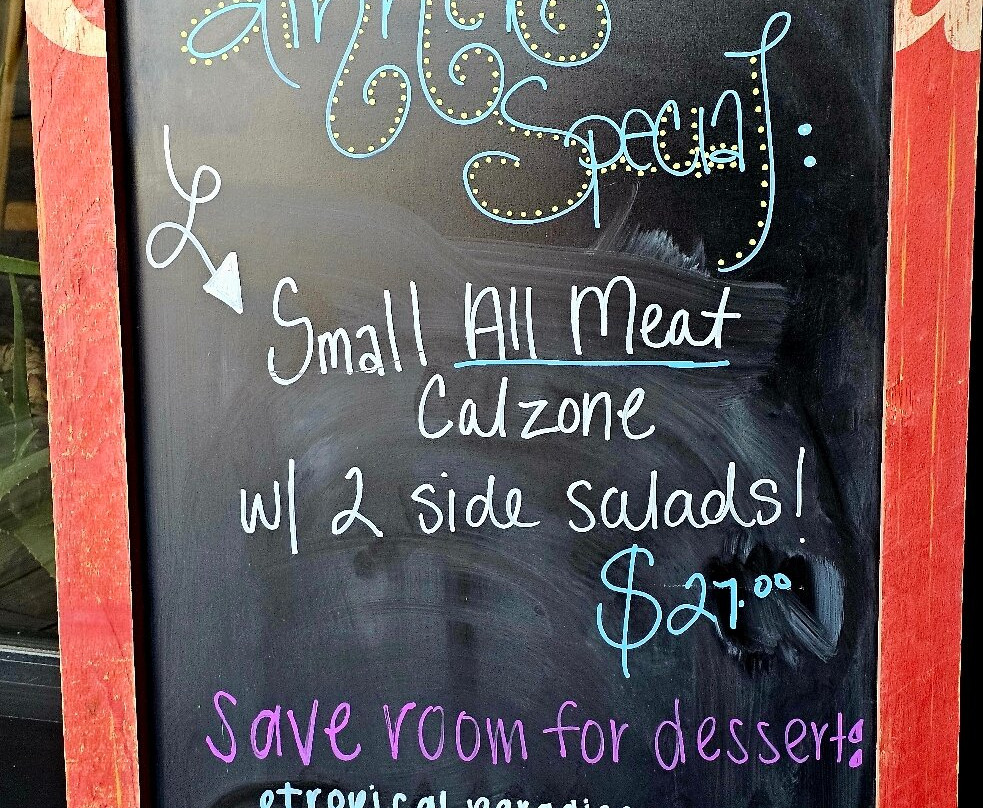 dinner
Special:
Small All Meat
Calzone
w/ 2 side salads!
$27.00
Save room for dessert!